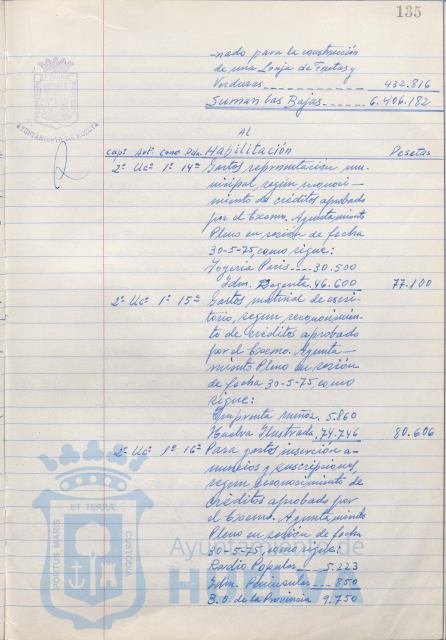 135
-nado para la construcción
de una Lonja de Frutas y
Verduras 432.816
Suman las Bajas 6.406.182
AYUNTAMIENTO DE HUELVA
AL
Capº Artº Conc. Pda. Habilitación Pesetas
2º Ucº 1º 14ª Gastos representación mu-
nicipal, según reconoci-
miento de créditos aprobado
por el Excmo. Ayuntamiento
Pleno en sesión de fecha
30-5-75, como sigue:
Joyería Paris 30.500
Idm. 46.600 77.100
2º Ucº 1º 15ª Gastos material de escri-
torio, según reconocimien-
to de créditos aprobado
por el Excmo. Ayunta-
miento Pleno en sesión
de fecha 30-5-75, como
sigue:
Imprenta Muñoz. 5.860
Huelva Ilustrada, 74.746 80.606
2º Ucº 1º 16ª Para gastos inserción a-
nuncios y suscripciones,
según reconocimiento de
créditos aprobado por
el Excmo. Ayuntamiento
Pleno en sesión de fecha
30-5-75, como sigue:
Radio Popular 5.223
Idm. Peninsular 850
B.O. de la Provincia 9.750
PORTUS MARIS ET TERRÆ CUSTODIA
Ayuntamiento de
HUELVA